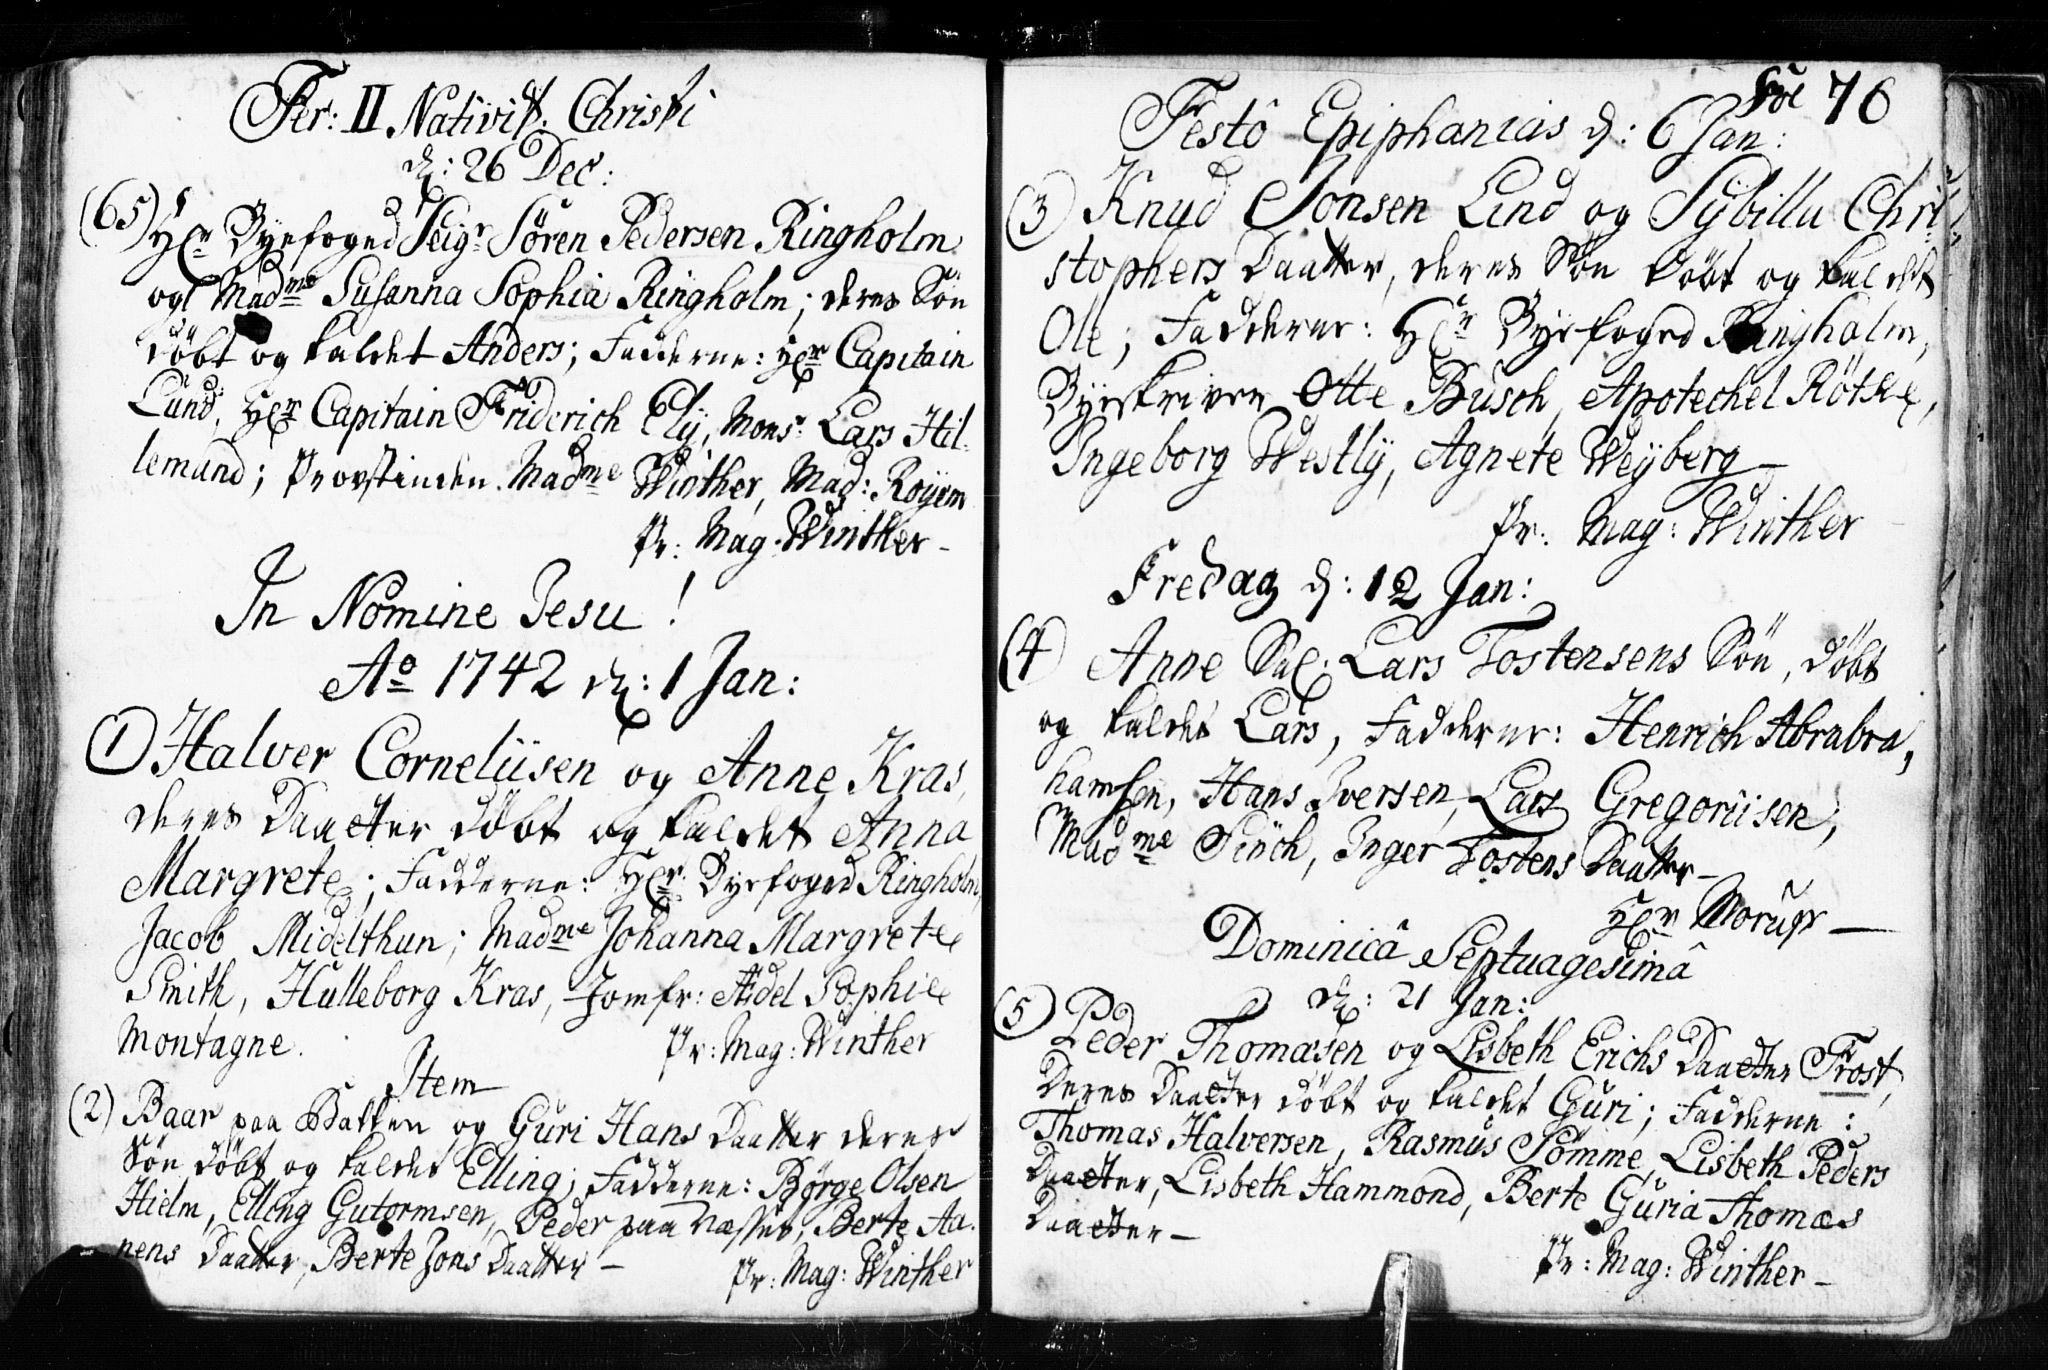 Fer: II Nativit: Christi
d: 26 Dec:
(65) Hr Byefoged Seigr Søren Pedersen Ringholm
og Madme Susanna Sophia Ringholm; deres Søn
døbt og kaldet Anders; Fadderne: Hr Capitain
Lund, Hr Capitain Friderich Ely, Monsr: Lars Hil-
lemand; Provstinden Madme Winther, Mad: Royem
Pr: Mag: Winther –
In Nomine Jesu!
Ao 1742 d: 1 Jan:
(1) Halver Corneliisen og Anne Kras,
deres Daatter døbt og kaldet Anna
Margrete; Fadderne: Hr Byefoged Ringholm,
Jacob Midelthun; Madme Johanna Margrete
Smith, Hulleborg Kras, Jomfr: Aidel Sophie
Montagne. Pr: Mag: Winther
Item
(2) Baar paa Bakken og Guri Hans Daatter deres
Søn døbt og kaldet Elling; Fadderne: Børge Olsen
Hielm, Elling Gutormsen, Peder paa Næsset, Berte Aa-
nens Daatter, Berte Jons Daatter –
Pr: Mag: Winther
Fol 76
Festô Epiphanias d: 6 Jan:
(3) Knud Jonsen Lind og Sybilla Chri-
stophers Daatter, deres Søn døbt og kaldet
Ole; Fadderne: Hr Byefoged Ringholm,
Byeskriver Otte Busch, Apotechel Røtke,
Ingeborg Westly, Agnete Weyberg –
Pr: Mag: Winther
Fredag d: 12 Jan:
(4) Anne Sal: Lars Tostensens Søn, døbt
og kaldet Lars, Fadderne: Henrich Abrabra,
hamsen, Hans Iversen, Lars Gregoriisen,
Madme Finch, Inger Tostens Daatter –
Hr Morup –
Dominicâ Septuagesimâ
d: 21 Jan:
(5) Peder Thomæsen og Lisbeth Erichs Daatter Frost,
Deres Daatter døbt og kaldet Guri; Fadderne:
Thomas Halversen, Rasmus Sømme, Lisbeth Peders
Daatter, Lisbeth Hammond, Berte Guria Thomæs
Daatter –
Pr: Mag: Winther –